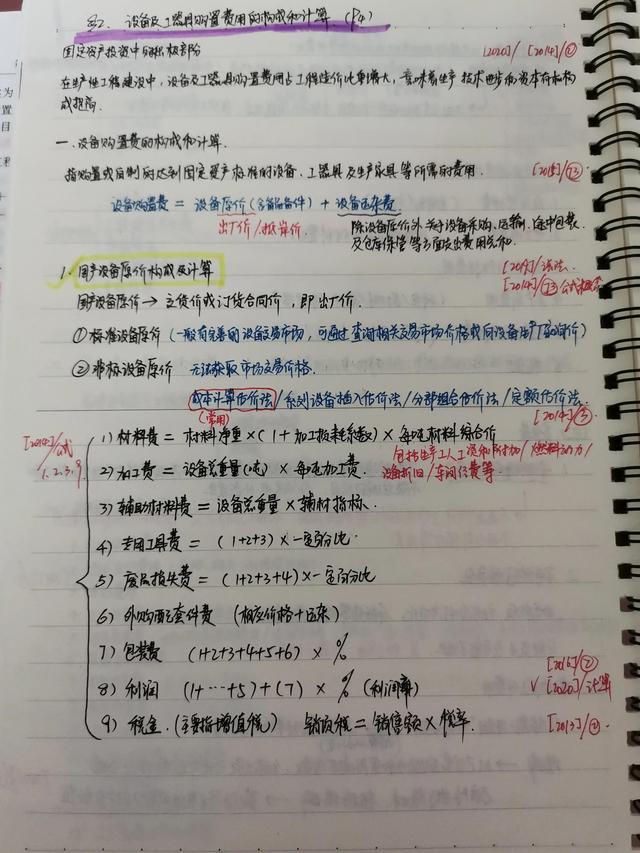 §2. 设备及工器具购置费用的构成和计算 (P4)
固定资产投资中的积极部分 [2020]/[2014]/①
在生产性工程建设中，设备及工器具购置费用占工程造价比重增大，意味着生产技术进步和资本有机构
成提高.
一、设备购置费的构成和计算.
指购置或自制的达到固定资产标准的设备、工器具及生产家具等所需的费用. [2018]/①③
设备购置费 = 设备原价(含备品备件) + 设备运杂费
出厂价/抵岸价. 除设备原价外关于设备采购、运输、途中包装
及仓库保管等方面支出费用总和.
1. 国产设备原价构成及计算 [2019]/
国产设备原价 → 交货价或订货合同价，即出厂价. [2014]/
① 标准设备原价 (一般有完善的设备交易市场，可通过查询相关交易市场价格或向设备生产厂家询价)
② 非标设备原价 无法获取市场交易价格.
成本计算估价法/系列设备插入估价法/分部组合估价法/定额估价法.
(常用) [2014]/③
[2014]/公式
1.2.3.9.
1) 材料费 = 材料净重×(1+加工损耗系数)×每吨材料综合价
包括生产工人工资和附加/燃料动力/
2) 加工费 = 设备总重量(吨)×每吨加工费. 设备折旧/车间经费等
3) 辅助材料费 = 设备总重量×辅材指标.
4) 专用工具费 = (1+2+3)×一定百分比.
5) 废品损失费 = (1+2+3+4)×一定百分比
6) 外购配套件费 (相应价格+运杂)
7) 包装费 (1+2+3+4+5+6)×%
[2016]/②
8) 利润 (1+…+5)+(7)×% (利润率) √[2020]/计算
9) 税金.(主要指增值税) 销项税=销售额×税率. [2013]/②